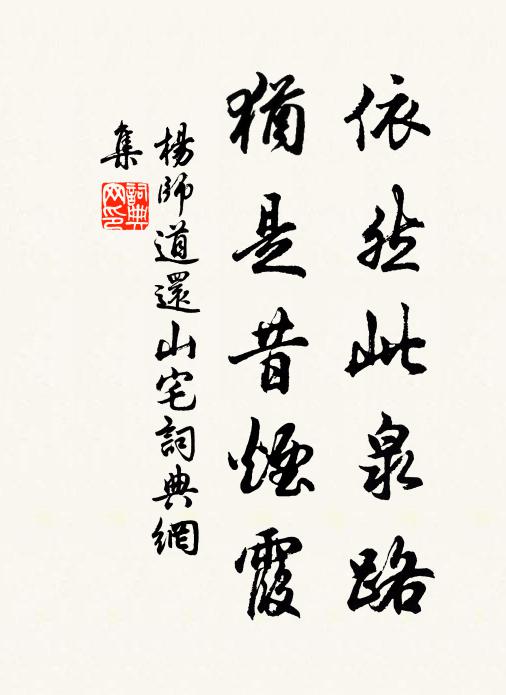 依然此泉路
猶是昔煙霞
楊師道還山宅詞典網
集
詞典網印